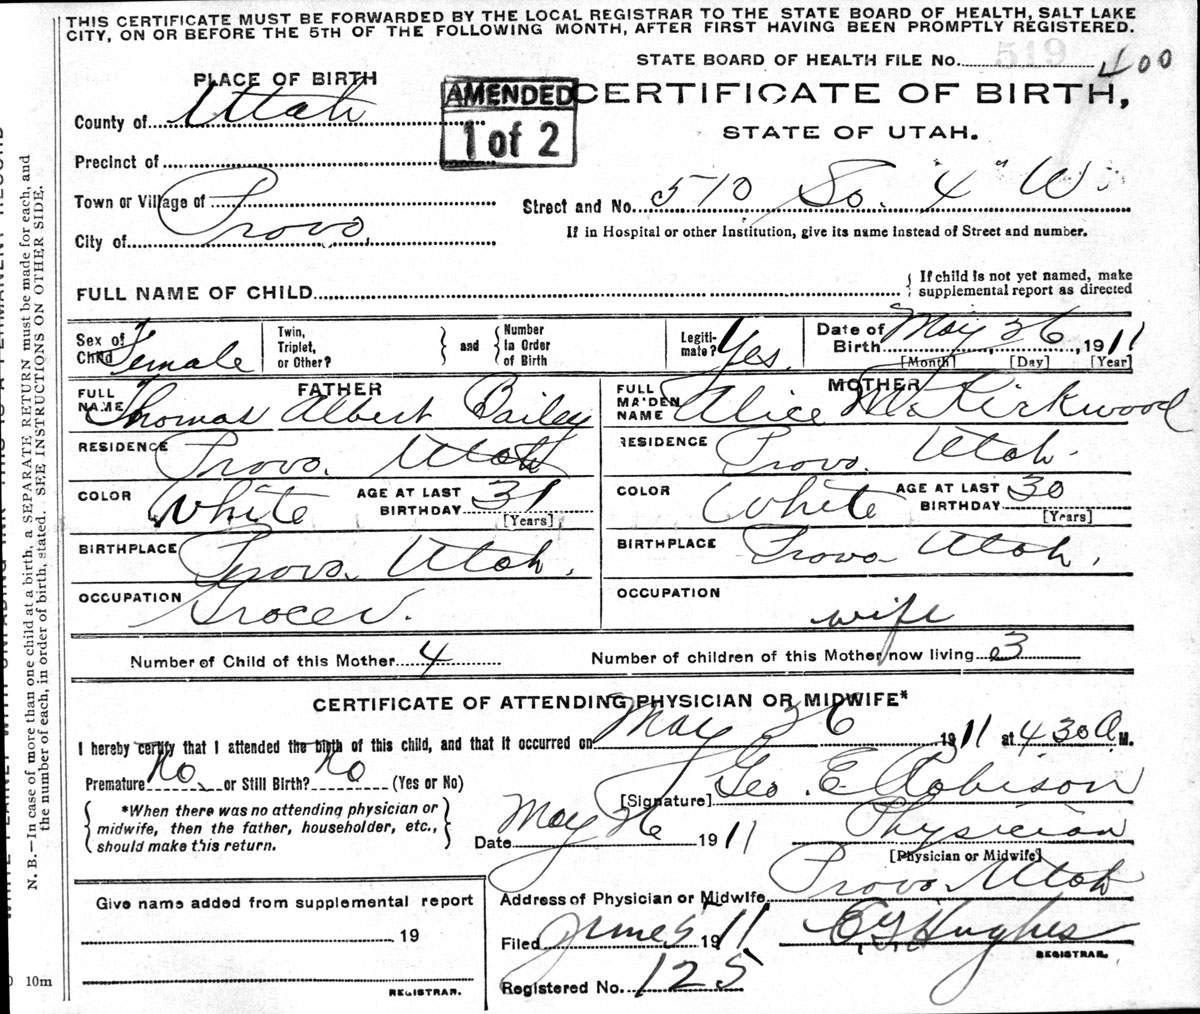 THIS CERTIFICATE MUST BE FORWARDED BY THE LOCAL REGISTRAR TO THE STATE BOARD OF HEALTH, SALT LAKE
CITY, ON OR BEFORE THE 5TH OF THE FOLLOWING MONTH, AFTER FIRST HAVING BEEN PROMPTLY REGISTERED.
STATE BOARD OF HEALTH FILE No. 519 400
PLACE OF BIRTH
AMENDED
1 of 2
CERTIFICATE OF BIRTH,
STATE OF UTAH.
County of Utah
Precinct of
Town or Village of
City of Provo
Street and No. 510 So. 4 W.
If in Hospital or other Institution, give its name instead of Street and number.
FULL NAME OF CHILD
If child is not yet named, make
supplemental report as directed
Sex of Child Female
Twin, Triplet, or Other? and Number in Order of Birth
Legitimate? Yes
Date of Birth May 26, 1911
[Month] [Day] [Year]
FATHER
FULL NAME Thomas Albert Bailey
MOTHER
FULL MAIDEN NAME Alice M. Kirkwood
RESIDENCE Provo. Utah
RESIDENCE Provo. Utah.
COLOR White AGE AT LAST BIRTHDAY 31 [Years]
COLOR White AGE AT LAST BIRTHDAY 30 [Years]
BIRTHPLACE Provo. Utah.
BIRTHPLACE Provo Utah.
OCCUPATION Grocer.
OCCUPATION wife
Number of Child of this Mother 4 Number of children of this Mother now living 3
CERTIFICATE OF ATTENDING PHYSICIAN OR MIDWIFE*
I hereby certify that I attended the birth of this child, and that it occurred on May 26 1911 at 4 30 A M.
Premature No or Still Birth? No (Yes or No)
*When there was no attending physician or
midwife, then the father, householder, etc.,
should make this return.
[Signature] Geo. E Robison
Date May 26 1911 Physician
[Physician or Midwife]
Address of Physician or Midwife Provo Utah
Give name added from supplemental report
19
REGISTRAR.
Filed June 5 1911 Hughes
REGISTRAR.
Registered No. 125
10m
N. B.—In case of more than one child at a birth, a SEPARATE RETURN must be made for each, and
the number of each, in order of birth, stated. SEE INSTRUCTIONS ON OTHER SIDE.